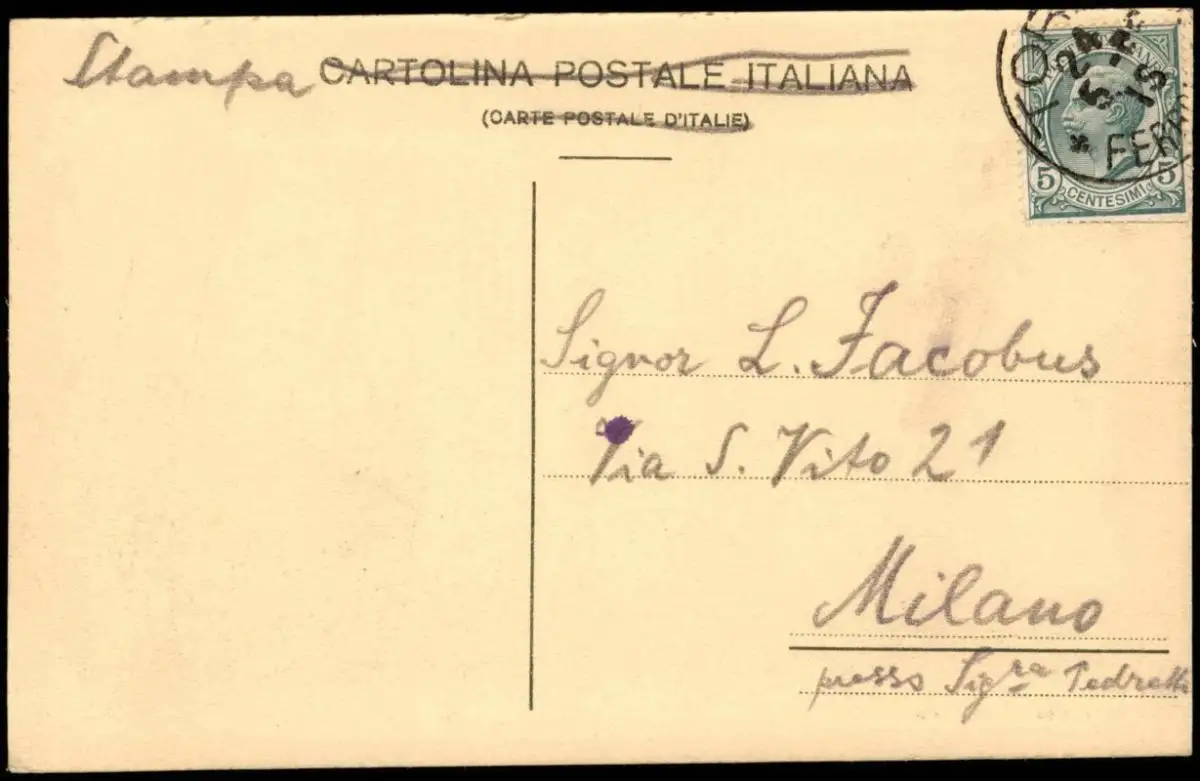 Stampa CARTOLINA POSTALE ITALIANA
(CARTE POSTALE D'ITALIE)
5 CENTESIMI 5
Signor L. Jacobus
Via S. Vito 21
Milano
presso Sigra Pedretti